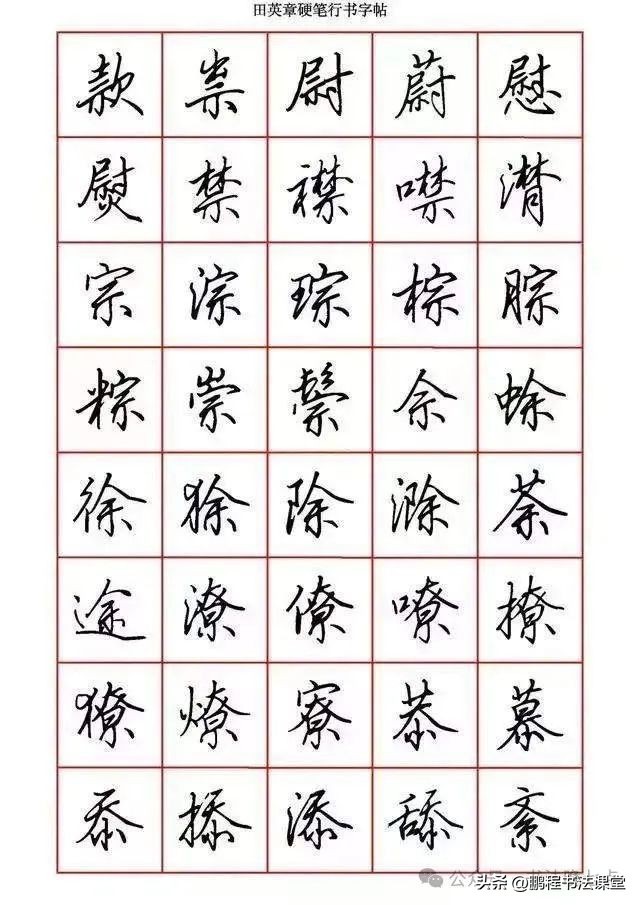 田英章硬笔行书字帖
款祟尉蔚慰
熨禁襟噤潸
宗淙琮棕腙
粽崇鬃余蜍
徐狳除滁荼
途潦僚嘹撩
獠燎寮恭慕
忝掭添舔紊
头条@鹏程书法课堂